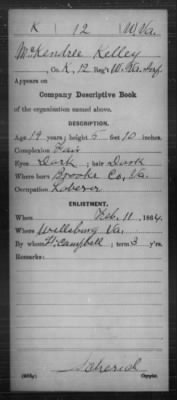 K 12 W.Va.
McKendree Kelley
, Co. K, 12 Reg't W. Va. Inf.
Appears on
Company Descriptive Book
of the organization named above.
DESCRIPTION.
Age 19 years; height 5 feet 10 inches.
Complexion Fair
Eyes Dark; hair Dark
Where born Brooke Co, Va.
Occupation Laborer
ENLISTMENT.
When Feb. 11, 1864.
Where Wellsburg Va.
By whom H. Campbell; term 3 y'rs.
Remarks:
Copyist.